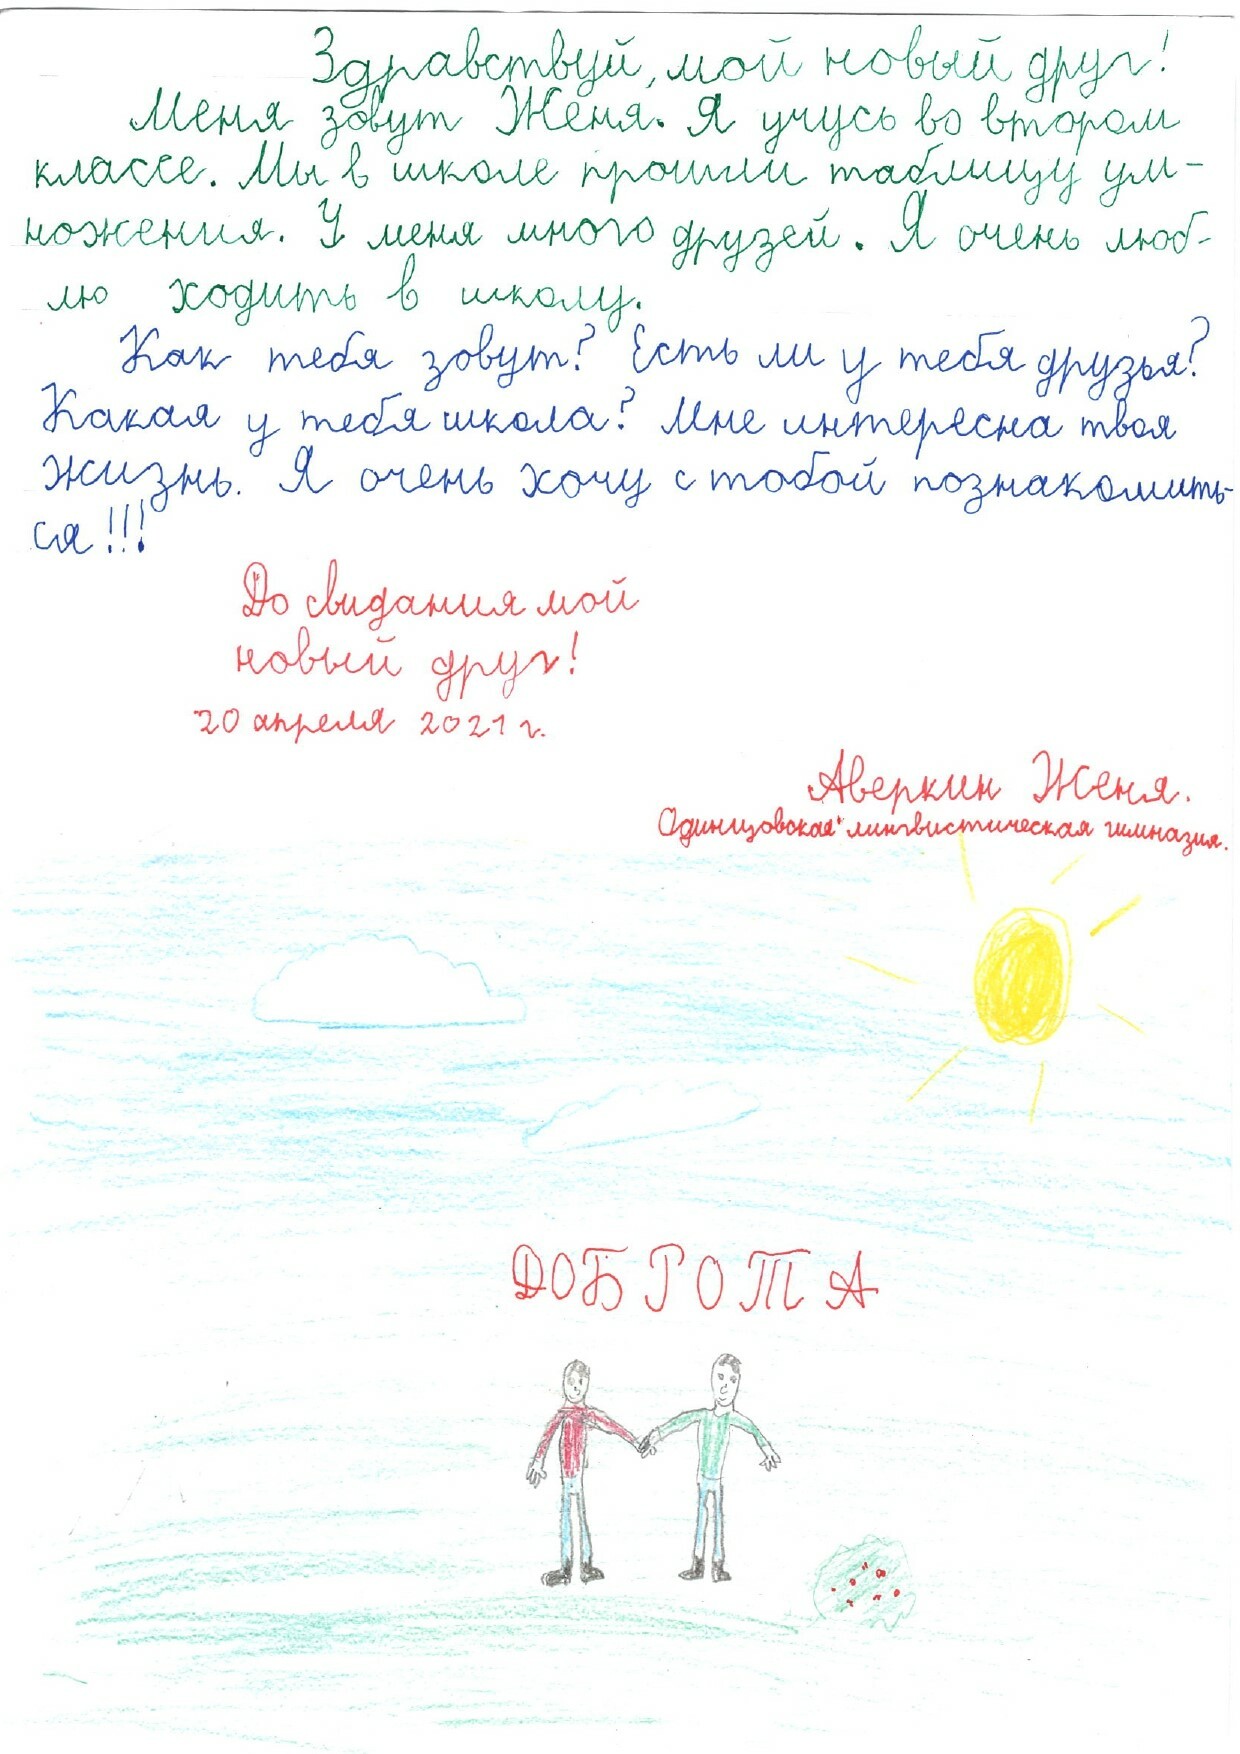 Здравствуй, мой новый друг!
Меня зовут Женя. Я учусь во втором
классе. Мы в школе прошли таблицу ум-
ножения. У меня много друзей. Я очень люб-
лю ходить в школу.
Как тебя зовут? Есть ли у тебя друзья?
Какая у тебя школа? Мне интересна твоя
жизнь. Я очень хочу с тобой познакомить-
ся!!!
До свидания мой
новый друг!
20 апреля 2021 г.
Аверкин Женя.
Одинцовская лингвистическая гимназия.
ДОБРОТА